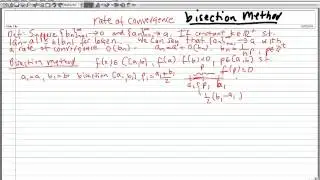 rate of convergence
bisection Method
Def: Suppose {bn}∞n=1 → 0 and {an}∞n=1 → a. If constant k∈R+ st.
|an-a| ≤ k|bn| for large n. We can say that {an}∞n=1 → a with
a rate of convergence O(bn). bn = 1/n^p, p∈R+
Bisection method f(x) ∈ C[a,b], f(a)·f(b)<0, p∈[a,b] st
f(p)=0
a1=a, b1=b bisection [a,b], p1 = a1+b1/2
p
a1 p1 b1
1/2(b1-a1)